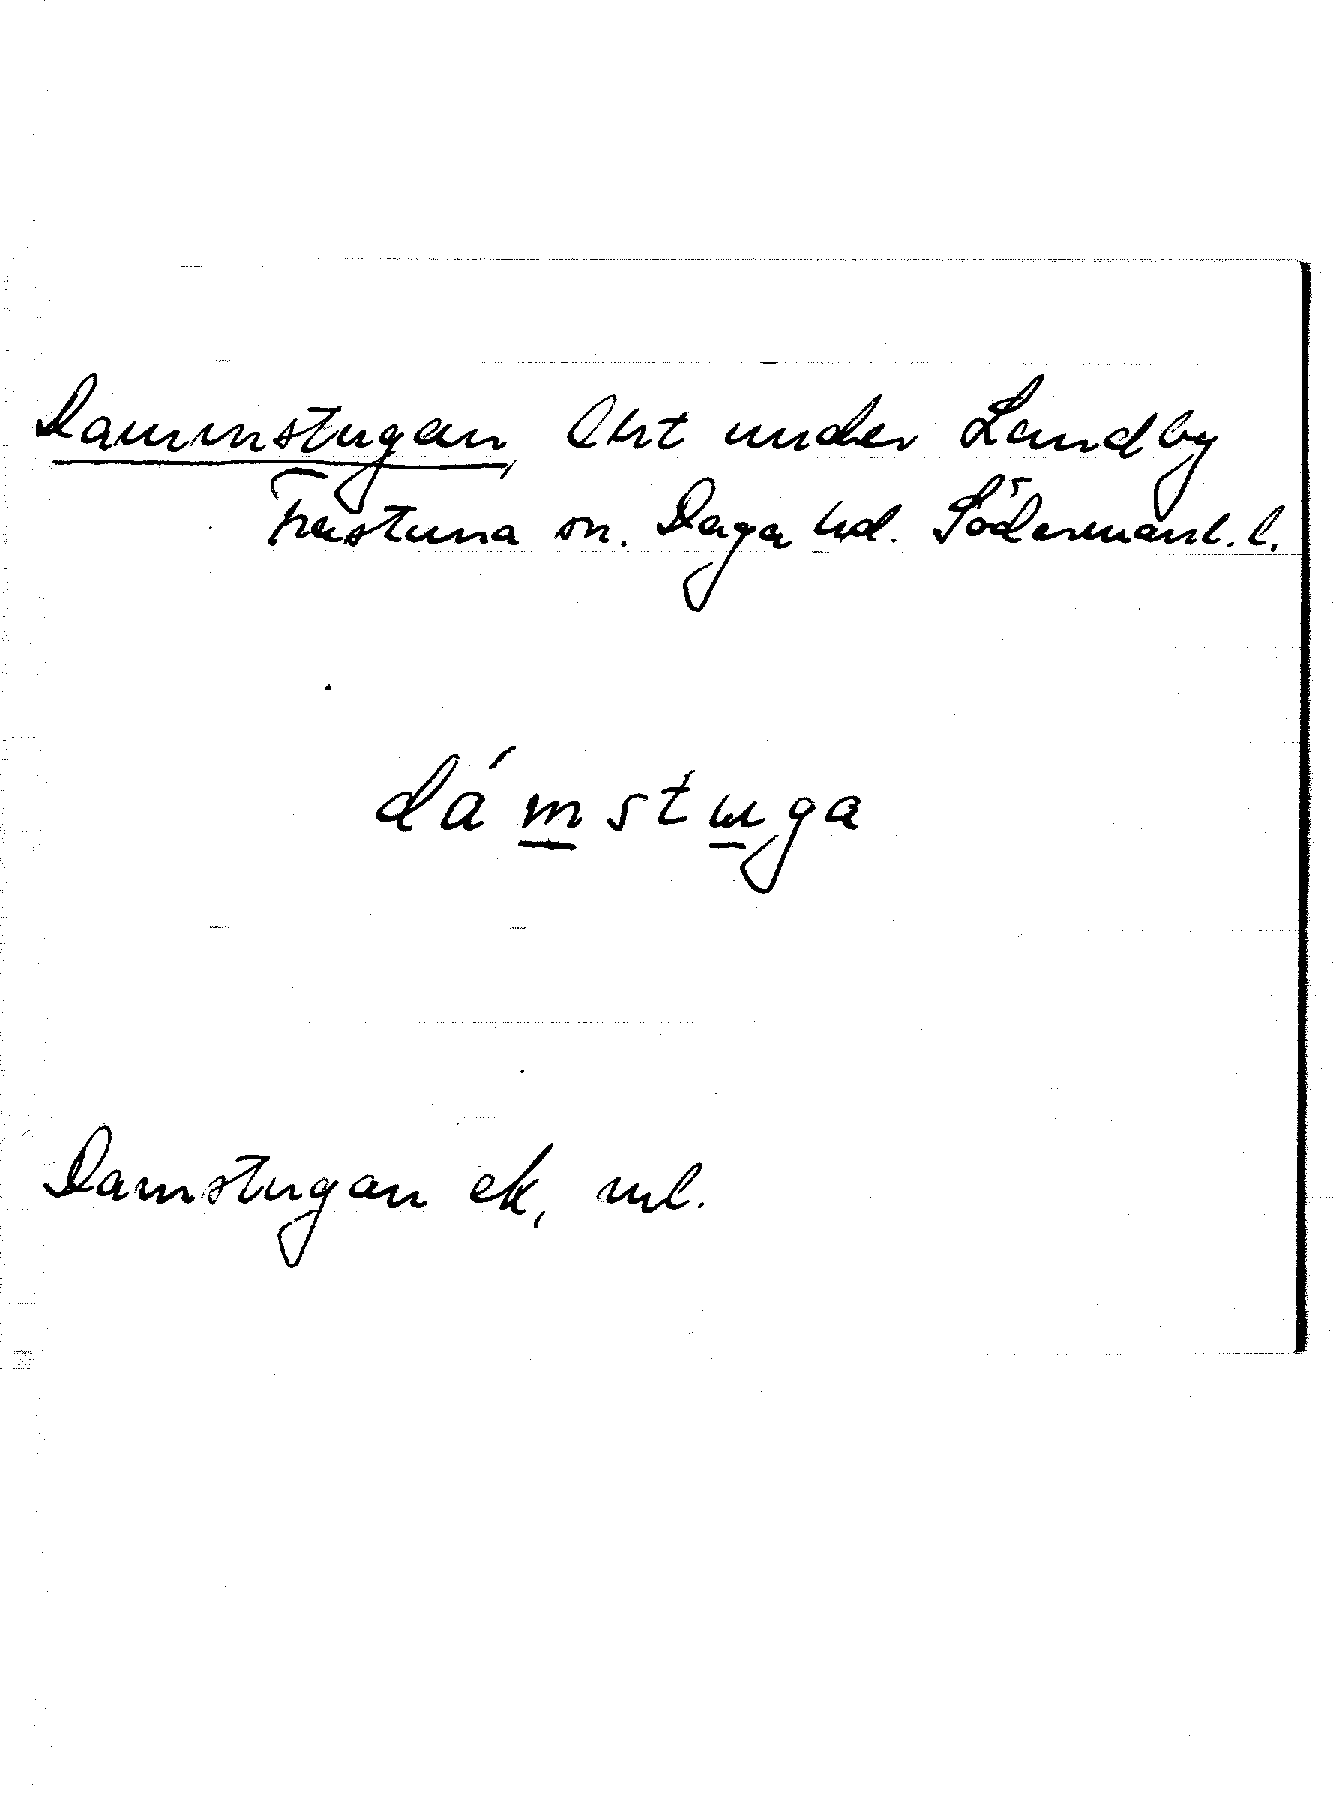 Dammstugan, lht under Landby
Frustuna sn. Daga hd. Södermanl. l.
dámstuga
Damstugan ek, ml.